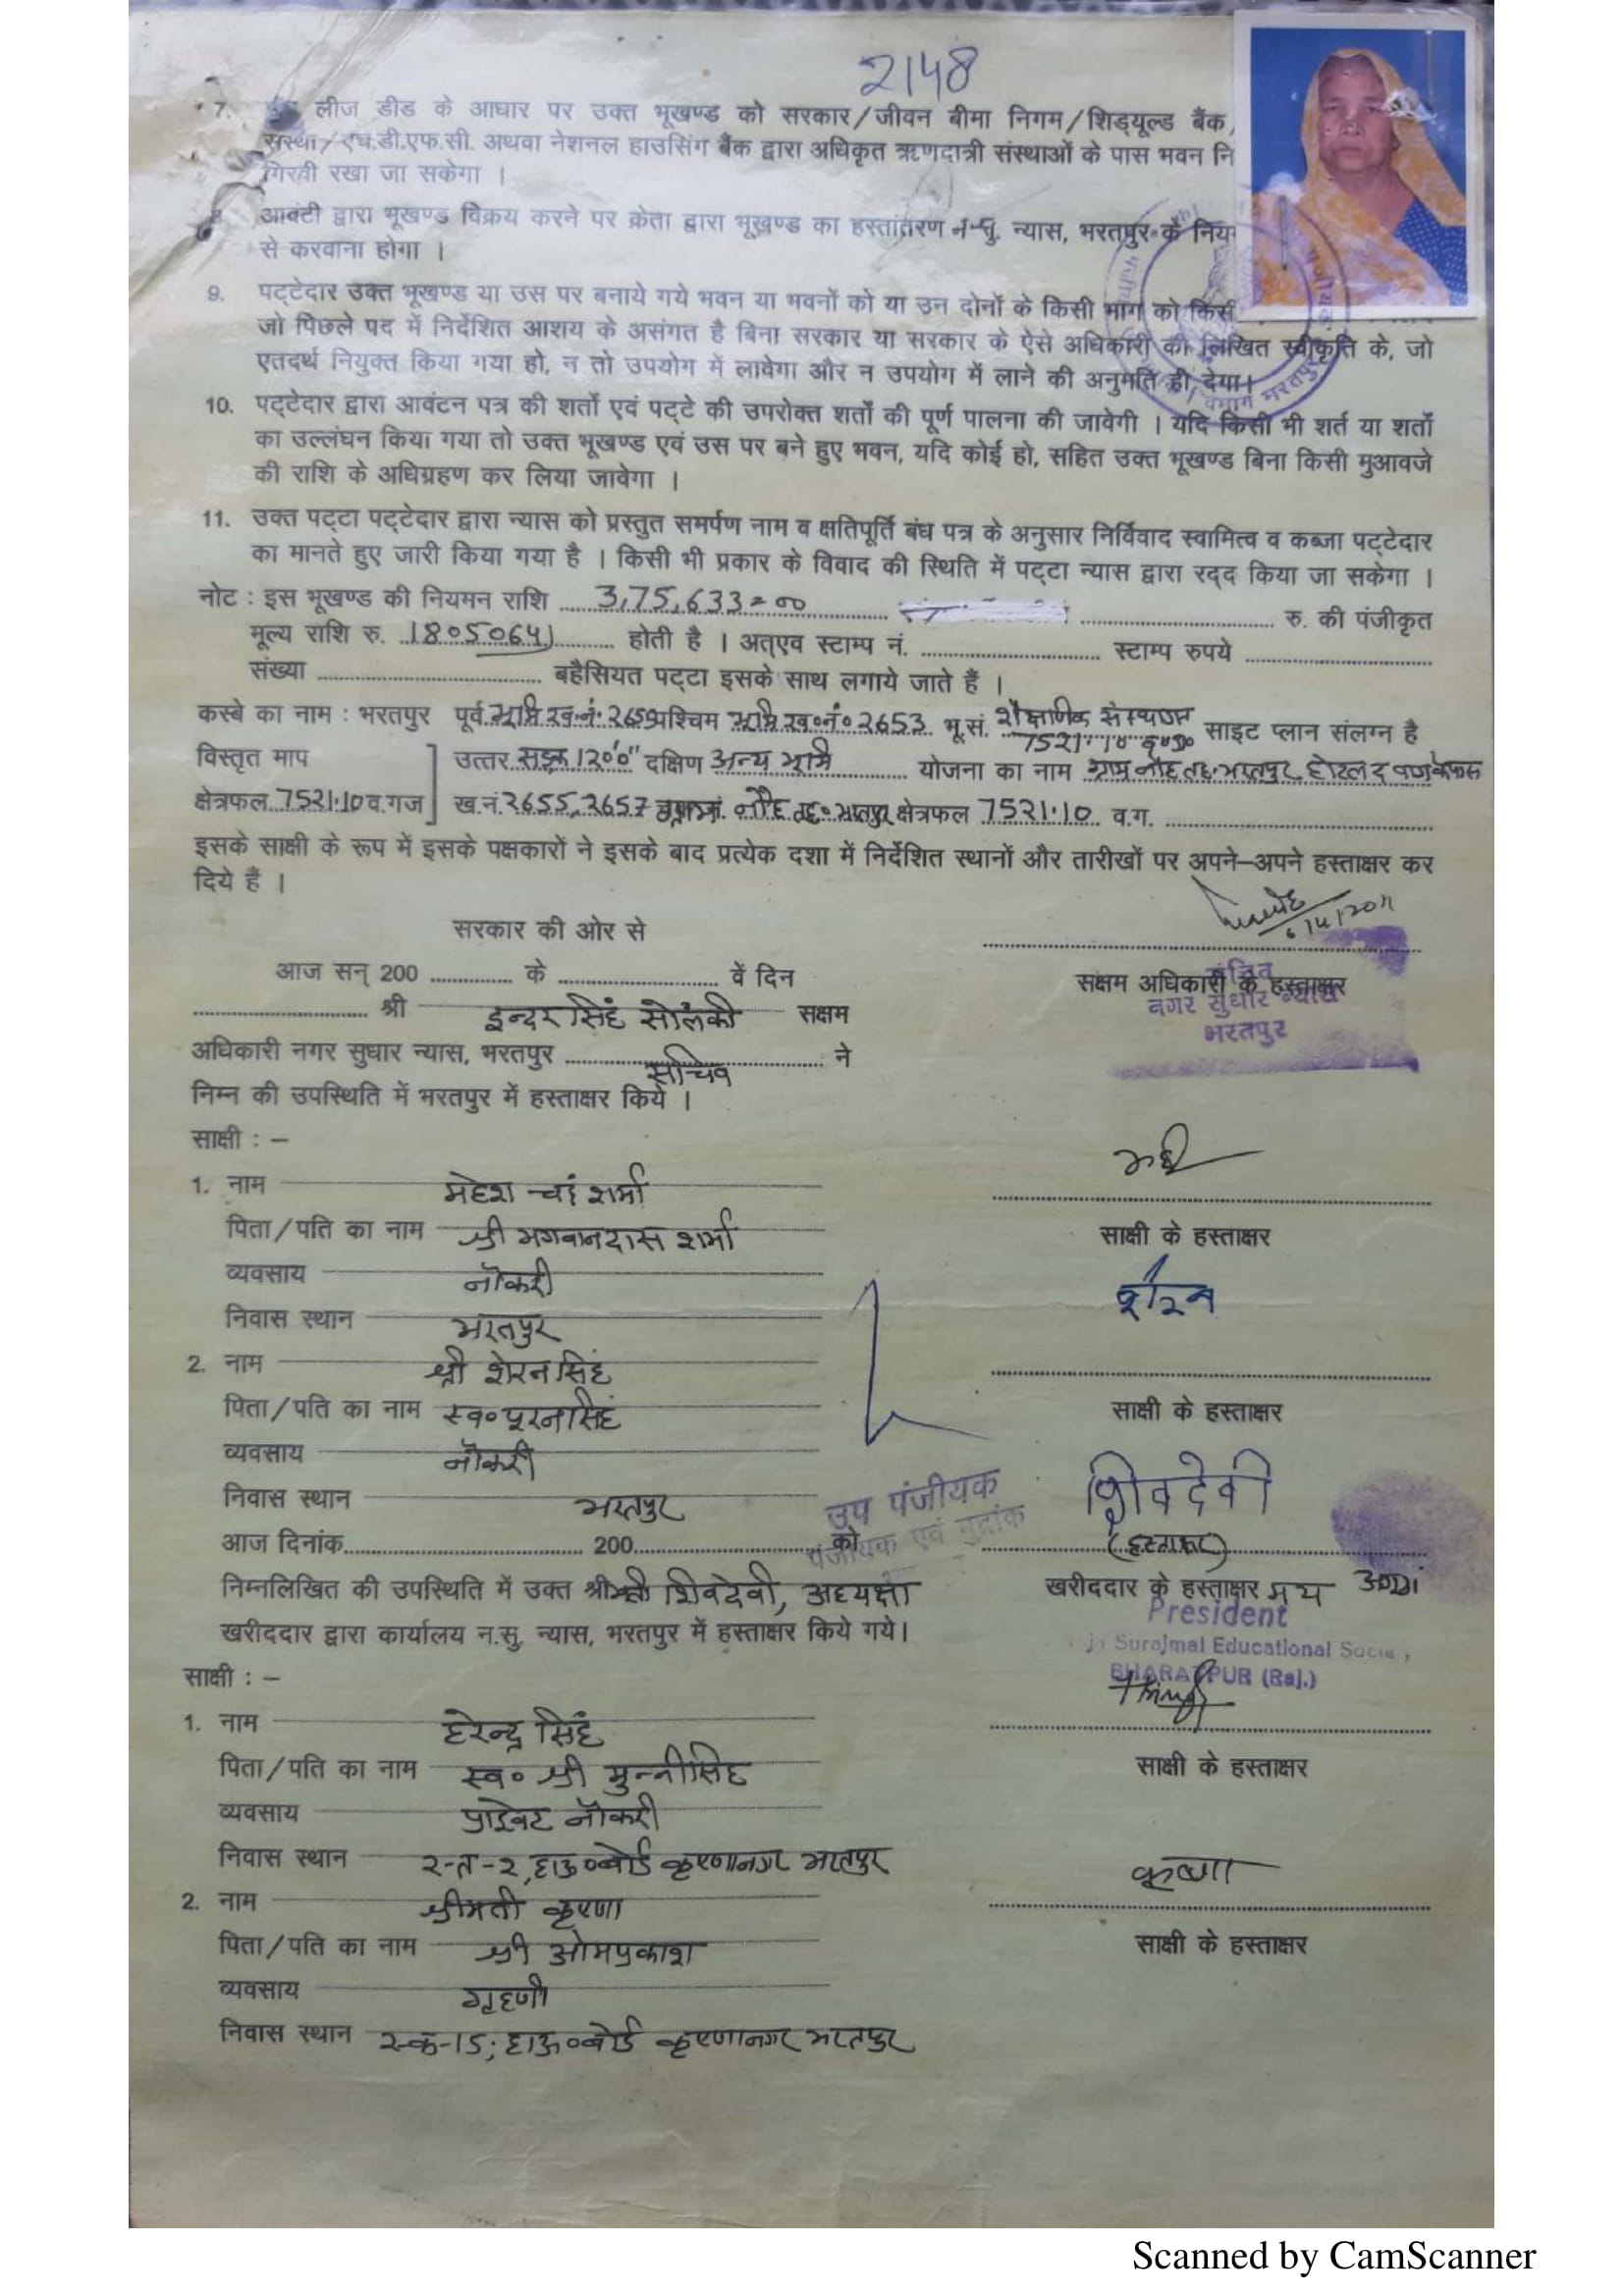 2148
7. लीज डीड के आधार पर उक्त भूखण्ड को सरकार/जीवन बीमा निगम/शिड्यूल्ड बैंक,
संस्था/एच.डी.एफ.सी. अथवा नेशनल हाउसिंग बैंक द्वारा अधिकृत ऋणदात्री संस्थाओं के पास भवन नि
गिरवी रखा जा सकेगा ।
8. आवंटी द्वारा भूखण्ड विक्रय करने पर क्रेता द्वारा भूखण्ड का हस्तांतरण न.सु. न्यास, भरतपुर के निय
से करवाना होगा ।
9. पट्टेदार उक्त भूखण्ड या उस पर बनाये गये भवन या भवनों को या उन दोनों के किसी भाग को किसी
जो पिछले पद में निर्देशित आशय के असंगत है बिना सरकार या सरकार के ऐसे अधिकारी की लिखित स्वीकृति के, जो
एतदर्थ नियुक्त किया गया हो, न तो उपयोग में लावेगा और न उपयोग में लाने की अनुमति ही देगा।
10. पट्टेदार द्वारा आवंटन पत्र की शर्तों एवं पट्टे की उपरोक्त शर्तों की पूर्ण पालना की जावेगी । यदि किसी भी शर्त या शर्तों
का उल्लंघन किया गया तो उक्त भूखण्ड एवं उस पर बने हुए भवन, यदि कोई हो, सहित उक्त भूखण्ड बिना किसी मुआवजे
की राशि के अधिग्रहण कर लिया जावेगा ।
11. उक्त पट्टा पट्टेदार द्वारा न्यास को प्रस्तुत समर्पण नाम व क्षतिपूर्ति बंध पत्र के अनुसार निर्विवाद स्वामित्व व कब्जा पट्टेदार
का मानते हुए जारी किया गया है । किसी भी प्रकार के विवाद की स्थिति में पट्टा न्यास द्वारा रद्द किया जा सकेगा ।
नोट : इस भूखण्ड की नियमन राशि 3,75,633=00 रु. की पंजीकृत
मूल्य राशि रु. 1805064) होती है । अत्एव स्टाम्प नं. स्टाम्प रुपये
संख्या बहैसियत पट्टा इसके साथ लगाये जाते हैं ।
कस्बे का नाम : भरतपुर पूर्व भूमि ख.नं. 2659 पश्चिम भूमि ख०नं० 2653 भू.सं. शैक्षणिक संस्थान 7521.10 साइट प्लान संलग्न है
विस्तृत माप उत्तर सड़क 120'0" दक्षिण अन्य भूमि योजना का नाम ग्राम नौंह तह. भरतपुर
क्षेत्रफल 7521.10 व.गज ख.नं. 2655, 2657 नौंह तह० भरतपुर क्षेत्रफल 7521.10 व.ग.
इसके साक्षी के रूप में इसके पक्षकारों ने इसके बाद प्रत्येक दशा में निर्देशित स्थानों और तारीखों पर अपने–अपने हस्ताक्षर कर
दिये हैं ।
सरकार की ओर से
आज सन् 200 के वें दिन
सक्षम अधिकारी के हस्ताक्षर
सचिव
नगर सुधार न्यास
भरतपुर
श्री इन्दर सिंह सोलंकी सक्षम
अधिकारी नगर सुधार न्यास, भरतपुर सचिव ने
निम्न की उपस्थिति में भरतपुर में हस्ताक्षर किये ।
साक्षी : –
1. नाम महेश चंद शर्मा
पिता/पति का नाम श्री भगवानदास शर्मा
साक्षी के हस्ताक्षर
व्यवसाय नौकरी
शेरन
निवास स्थान भरतपुर
2. नाम श्री शेरन सिंह
पिता/पति का नाम स्व० पूरन सिंह
साक्षी के हस्ताक्षर
व्यवसाय नौकरी
शिवदेवी
निवास स्थान भरतपुर
उप पंजीयक
पंजीयक एवं मुद्रांक
आज दिनांक 200 को
(हस्ताक्षर)
निम्नलिखित की उपस्थिति में उक्त श्रीमती शिवदेवी, अध्यक्षा
खरीददार के हस्ताक्षर मय
President
Surajmal Educational Society,
BHARATPUR (Raj.)
खरीददार द्वारा कार्यालय न.सु. न्यास, भरतपुर में हस्ताक्षर किये गये।
साक्षी : –
1. नाम हरेन्द्र सिंह
पिता/पति का नाम स्व० श्री मुन्नीसिंह
साक्षी के हस्ताक्षर
व्यवसाय प्राइवेट नौकरी
निवास स्थान २-त-२, हाऊ०बोर्ड कृष्णानगर भरतपुर
कृष्णा
2. नाम श्रीमती कृष्णा
पिता/पति का नाम श्री ओमप्रकाश
साक्षी के हस्ताक्षर
व्यवसाय गृहणी
निवास स्थान २-क-15, हाऊ०बोर्ड कृष्णानगर भरतपुर
Scanned by CamScanner